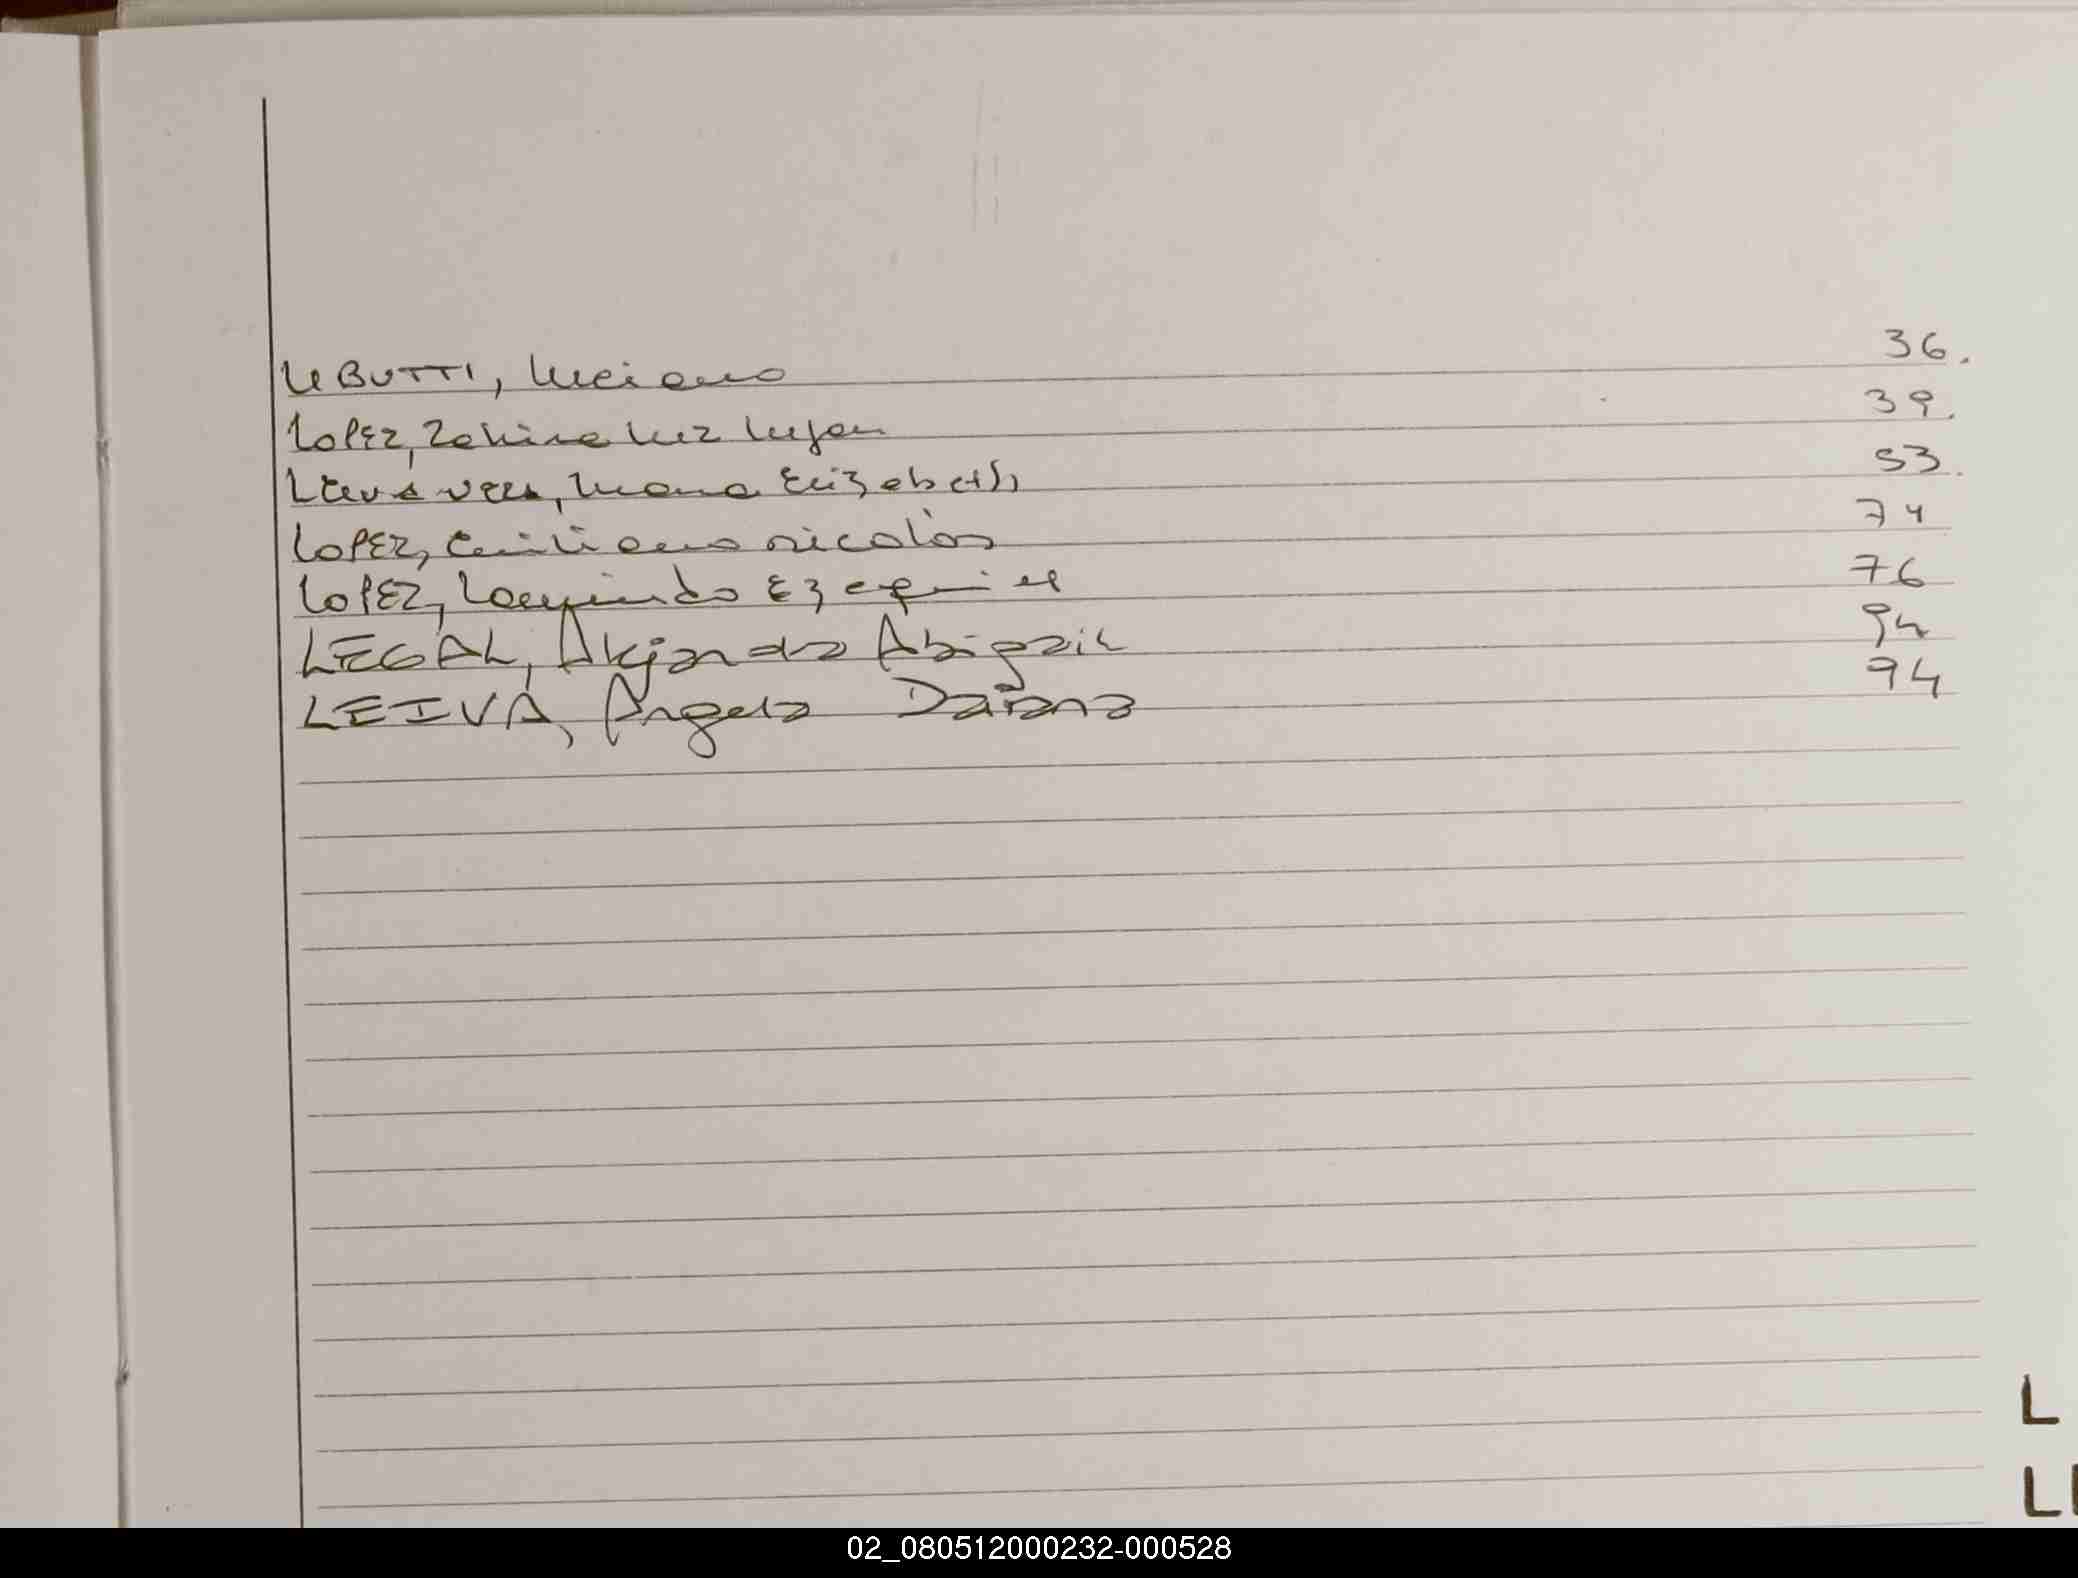 LEBUTTI, Luciano 36.
LOPEZ, Zahira Luz Lujan 39.
Elizabeth 53.
LOPEZ, Emiliano Nicolás 74
LOPEZ, Ezequiel 76
LEGAL, Alejandra Abigail 94
LEIVA, Angela Daiana 94
L
LL
02_080512000232-000528